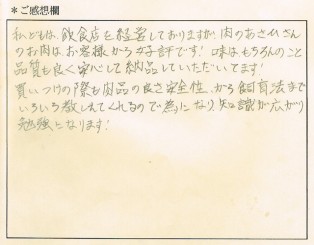 ＊ご感想欄
私どもは、飲食店を経営しておりますが、肉のあさひさん
のお肉はお客様から好評です！味はもちろんのこと
品質も良く安心して納品していただいてます！
買いつけの際も肉品の良さ安全性、から飼育法まで
いろいろ教しえてくれるので為になり、知識が広がり
勉強になります！